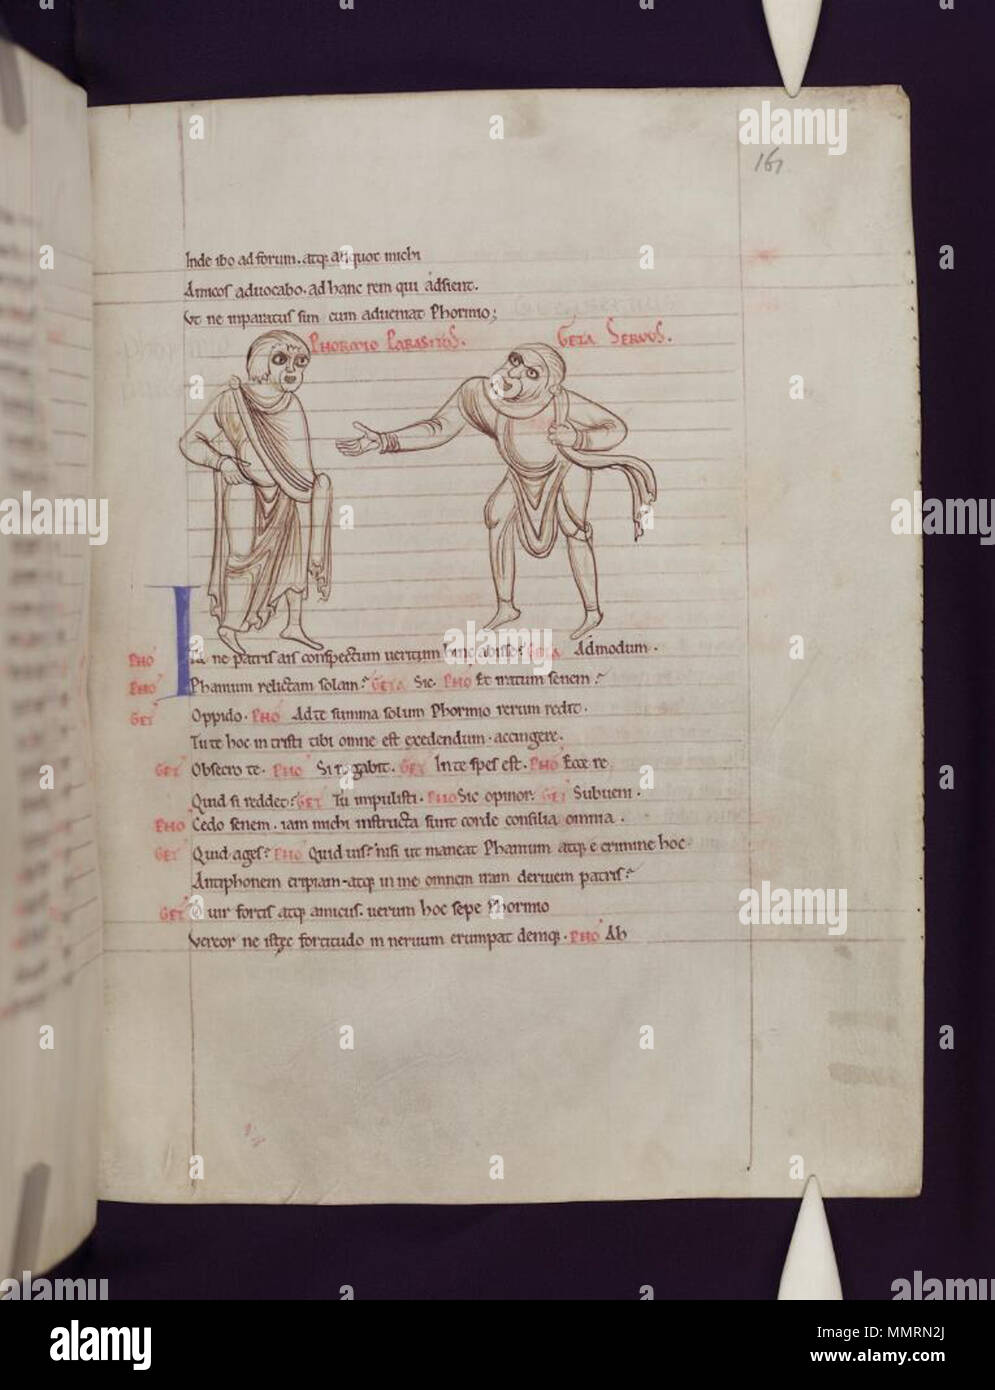 161
Inde ibo ad forum. atq; aliquot michi
Amicos aduocabo. ad hanc rem qui adsient.
Vt ne inparatus sim cum adueniat Phormio;
PHORMIO PARASITUS. GETA SERVUS.
PHO Ita ne patris ais conspectum ueritum hinc abisse? GETA Admodum.
PHO Phanium relictam solam? GETA Sic. PHO Et iratum senem?
GET Oppido. PHO Ad te summa solum Phormio rerum redit.
Tute hoc intristi tibi omne est exedendum. accingere.
GET Obsecro te. PHO Si rogabit. GET In te spes est. PHO Ecce re
Quid si reddet? GET Tu impulisti. PHO Sic opinor. GET Subueni.
PHO Cedo senem. iam michi instructa sunt corde consilia omnia.
GET Quid ages? PHO Quid uis? nisi ut maneat Phanium atq; e crimine hoc
Antiphonem eripiam atq; in me omnem iram deriuem patris?
GET O uir fortis atq; amicus. uerum hoc sepe Phormio
Vereor ne istęc fortitudo in neruum erumpat deniq;. PHO Ah
alamy
Image ID: MMRN2J
www.alamy.com